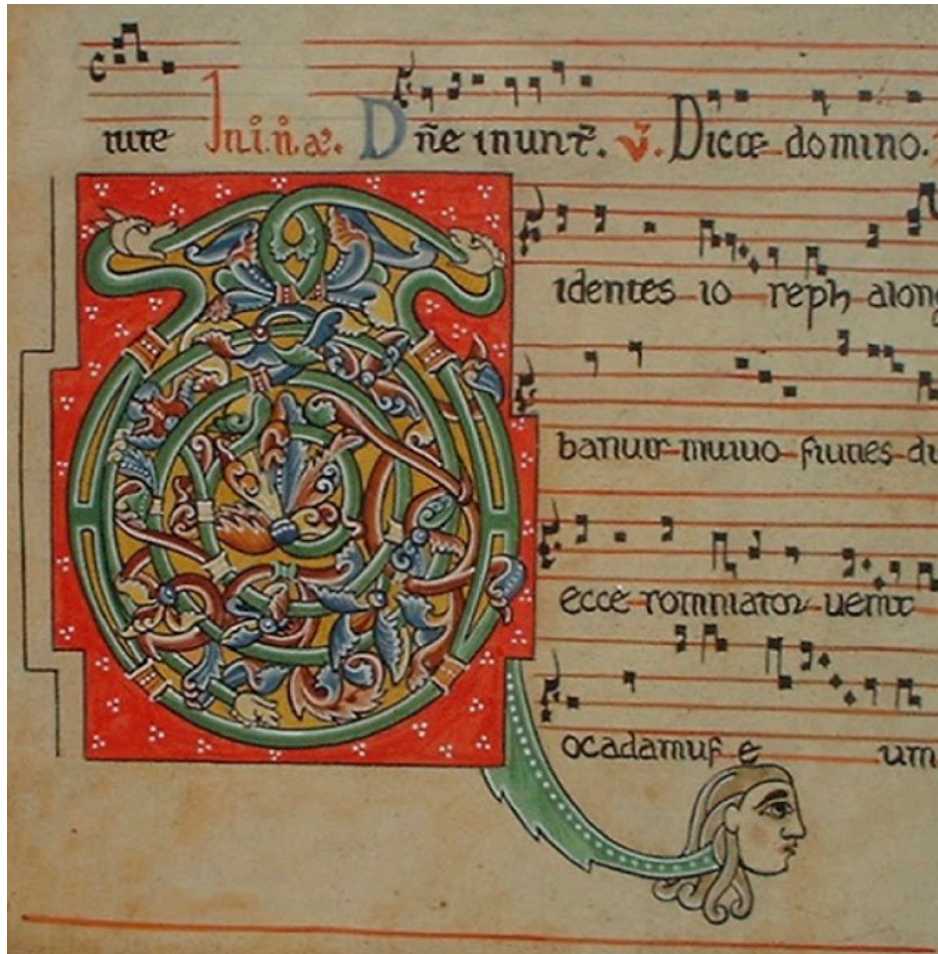 iure In.i.n.æ. Dñe inunt̃. v̄. Dicæ domino.
identes io seph along
banur muuo fiunes di
ecce romniator uenit
ocadamus e um